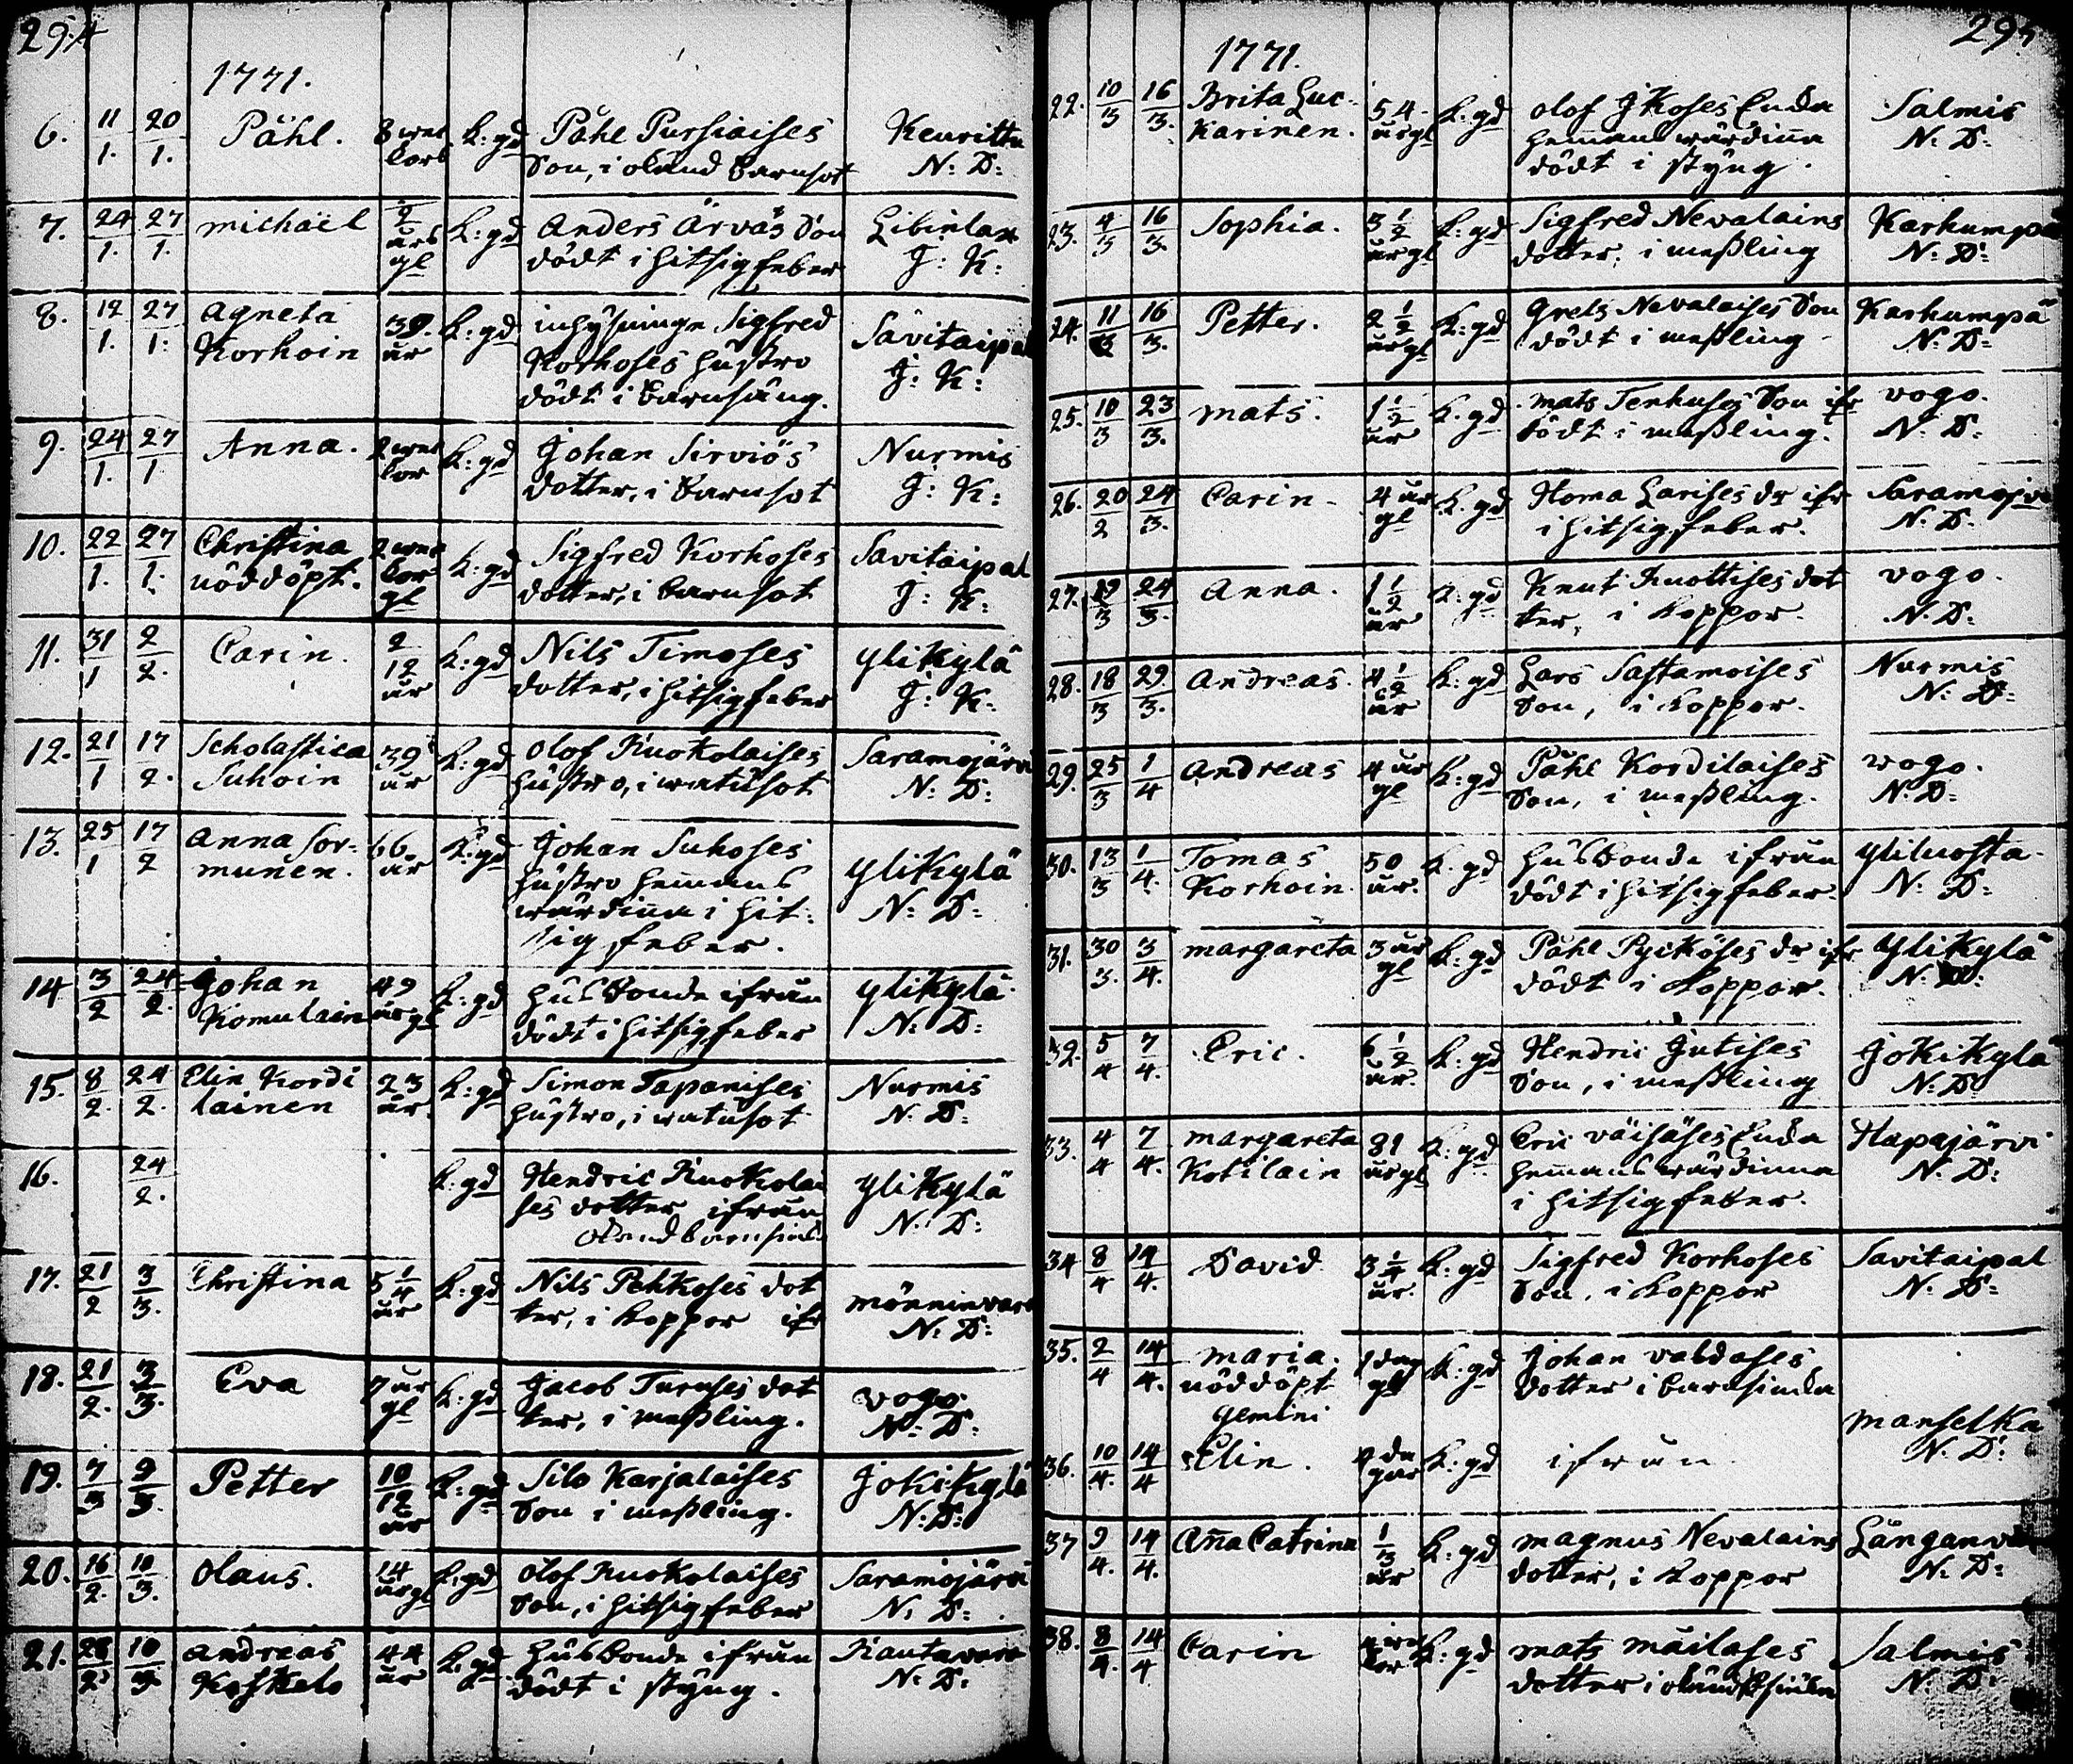 294
1771.
6. 11/1. 20/1. Påhl. 8 wec kors K: gd Påhl Pursiaises Son, i okänd barnsot Keurittu N: D:
7. 24/1. 27/1. michaël 2 års gl K: gd Anders Ärväs Son dödt i hitsigfeber Libinlax J: K:
8. 12/1. 27/1. Agneta Korhoin 39. år K: gd inhysninge Sigfred Korhoses hustro dödt i barnsäng. Savitaipal J: K:
9. 24/1. 27/1 Anna. 2 wec kor K: gd Johan Sirviös dotter, i barnsot Nurmis J: K:
10. 22/1. 27/1. Christina nöddöpt. 2 wec kor gl K: gd Sigfred Korhoses dotter, i barnsot Savitaipal J: K:
11. 31/1 2/2. Carin. 2/12 år K: gd Nils Timoses dotter, i hitsigfeber Ylikylä J: K.
12. 21/1 17/2. Scholastica Suhoin 39 år K: gd Olof Kuokolaises hustro, i watusot Saramojärvi N: D:
13. 25/1 17/2 Anna Sormunen. 66 år K: gd Johan Suhoses hustro hemans wärdinna i hitsigfeber. Ylikylä N: D:
14 3/2 24/2. Johan Komulain 49 år gl K: gd Husbonde ifrån dödt i hitsigfeber Ylikylä N: D:
15. 8/2. 24/2. Elin Kordilainen 23 år. K: gd Simon Tapanises hustro, i watusot Nurmis N: D:
16. 24/2. K: gd Hendric Kuokolaises dotter ifrån okend barnsiuk. Ylikylä N: D:
17. 21/2 3/3. Christina 5 1/4 år K: gd Nils Pehkoses dotter, i koppor ifr Mönninvara N: D:
18. 21/2. 3/3. Eva 7 år gl K: gd Jacob Turuses dotter, i meßling. vogo. N: D:
19. 7/3 9/3. Petter 10/12 år K: gd Silo Karjalaises Son i meßling. Jokikylä N: D:
20. 16/2. 10/3. Olaus. 14 år gl K: gd Olof Kuokolaises Son, i hitsigfeber Saramojärvi N: D:
21. 28/2 10/3. Andreas Koskelo 44 år K: gd Husbonde ifrån dödt i styng. Rautavara N: D:
1771.
22. 10/3 16/3. Brita Luckarinen. 54 år gl K: gd Olof JKoses Enda heman wärdinna dödt i styng. Salmis N: D:
23. 4/3 16/3. Sophia. 3 1/2 år gl K: gd Sigfred Nevalains dotter, i meßling Karhumpä N: D:
24. 11/3 16/3. Petter. 2 1/2 år gl K: gd Grels Nevalaises Son dödt i meßling Karhumpä N: D:
25. 10/3 23/3. mats. 1 1/2 år K: gd mats Tenhuses Son ifr dödt i meßling. vogo. N: D:
26. 20/2 24/3. Carin 4 år gl K: gd Homa Larises dr ifr i hitsigfeber. Saramojvi N: D:
27. 19/3 24/3. Anna. 1 1/2 år K: gd Knut Kuottises dotter, i koppor. vogo. N: D:
28. 18/3 29/3. Andreas. 4 1/2 år K: gd Lars Sastamoises Son, i koppor. Nurmis N: D:
29. 25/3 1/4 Andreas 4 år gl K: gd Påhl Kordilaises Son, i meßling. vogo. N: D:
30. 13/3 1/4. Tomas Korhoin. 50 år. K: gd Husbonde ifrån dödt i hitsigfeber. N: D:
31. 30/3. 3/4. margareta 3 år gl K: gd Påhl Pyiköses dr ifr dödt i koppor. Ylikylä N: D:
32. 5/4 7/4. Eric. 6 1/2 år. K: gd Hendric Jutises Son, i meßling Jokikylä N: D:
33. 4/4 7/4. margareta Kotilain 81 år gl K: gd Eric väisäses Enda hemans wärdinna i hitsigfeber. Hapajärvi N: D:
34 8/4 14/4. David 3 1/4 år. K: gd Sigfred Korhoses Son, i koppor Savitaipal N: D:
35. 2/4 14/4. maria. nöddöpt 1 dag gl K: gd Johan valdases dotter i barnsiuka
Gemini
36. 10/4. 14/4 Elin. dagar K: gd ifrån manselka N: D:
37 9/4. 14/4. Aña Catrina 1/3 år K: gd magnus Nevalains dotter, i koppor Långanva N: D:
38. 8/4. 14/4 Carin K: gd mats mäiläses dotter i okänd Siuka Salmis N: D: